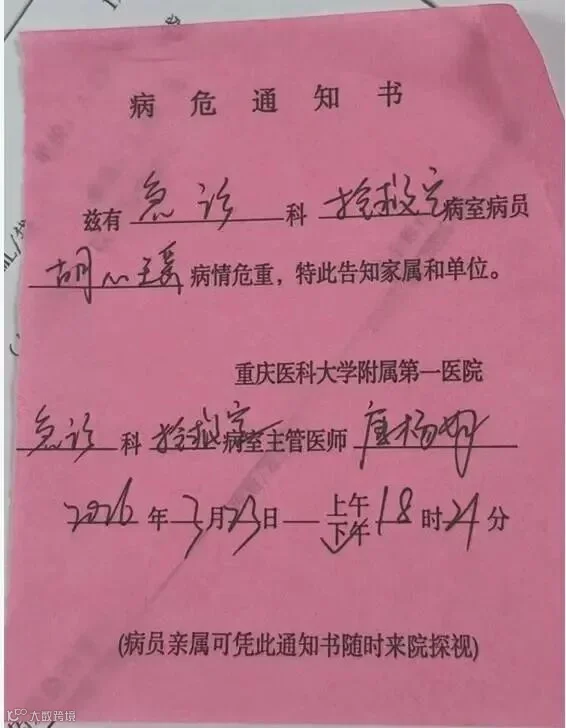 病危通知书
兹有 急诊 科 抢救室 病室病员
胡心瑗 病情危重，特此告知家属和单位。
重庆医科大学附属第一医院
急诊 科 抢救室 病室主管医师 唐杨
2026 年 3 月 23 日 上午
下午 18 时 24 分
(病员亲属可凭此通知书随时来院探视)
大数跨境